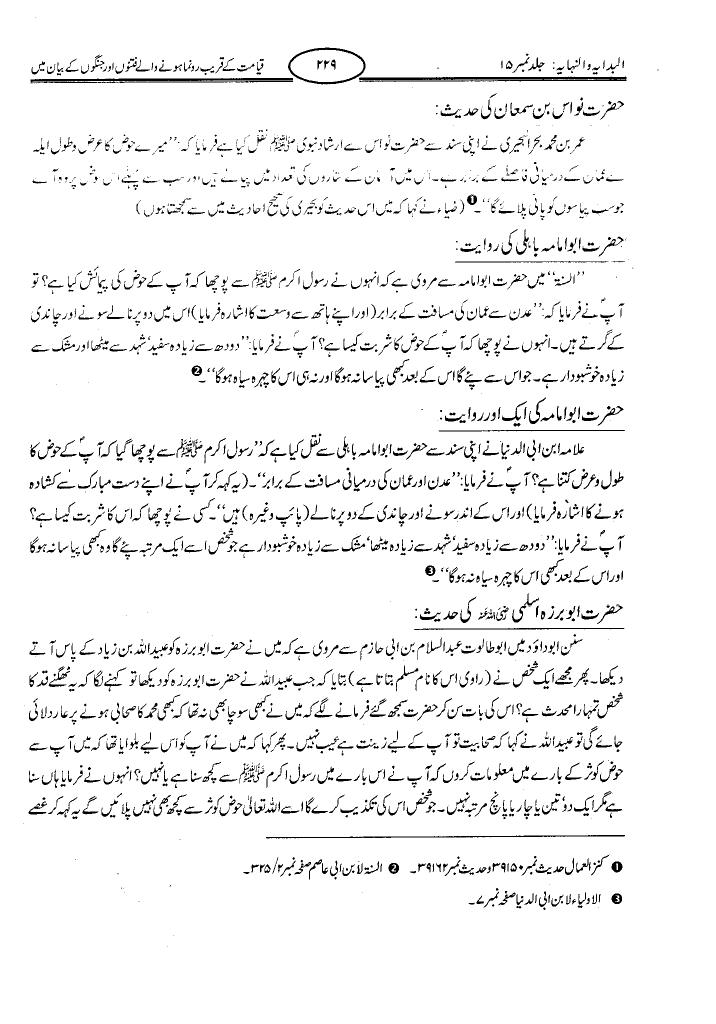 البدایہ والنہایہ: جلد نمبر ۱۵
۲۲۹
قیامت کے قریب رونما ہونے والے فتنوں اور جنگوں کے بیان میں
حضرت نواس بن سمعان کی حدیث:
عمر بن محمد بحر البجیری نے اپنی سند سے حضرت نواس سے ارشاد نبوی ﷺ نقل کیا ہے فرمایا کہ: ’’میرے حوض کا عرض و طول ایلہ
سے عمان کے درمیانی فاصلے کے برابر ہے۔ اس میں آسمان کے ستاروں کی تعداد میں پیالے ہیں اور سب سے پہلے اس حوض پر وہ آئے
جو سب پیاسوں کو پانی پلائے گا‘‘۔❶ (ضیاء نے کہا کہ میں اس حدیث کو بجیری کی صحیح احادیث میں سے سمجھتا ہوں)
حضرت ابوامامہ باہلی کی روایت:
’’السنۃ‘‘ میں حضرت ابوامامہ سے مروی ہے کہ انہوں نے رسول اکرم ﷺ سے پوچھا کہ آپ کے حوض کی پیمائش کیا ہے؟ تو
آپؐ نے فرمایا کہ: ’’عدن سے عمان کی مسافت کے برابر (اور اپنے ہاتھ سے وسعت کا اشارہ فرمایا) اس میں دو پرنالے سونے اور چاندی
کے گرتے ہیں۔ انہوں نے پوچھا کہ آپؐ کے حوض کا شربت کیسا ہے؟ آپؐ نے فرمایا: ’’دودھ سے زیادہ سفید‘ شہد سے میٹھا اور مشک سے
زیادہ خوشبودار ہے۔ جو اس سے پئے گا اس کے بعد کبھی پیاسا نہ ہوگا اور نہ ہی اس کا چہرہ سیاہ ہوگا‘‘۔❷
حضرت ابوامامہ کی ایک اور روایت:
علامہ ابن ابی الدنیا نے اپنی سند سے حضرت ابوامامہ باہلی سے نقل کیا ہے کہ ’’رسول اکرم ﷺ سے پوچھا گیا کہ آپؐ کے حوض کا
طول و عرض کتنا ہے؟ آپؐ نے فرمایا: ’’عدن اور عمان کی درمیانی مسافت کے برابر‘‘۔ (یہ کہہ کر آپؐ نے اپنے دست مبارک سے کشادہ
ہونے کا اشارہ فرمایا) اور اس کے اندر سونے اور چاندی کے دو پرنالے (پائپ وغیرہ) ہیں‘‘۔ کسی نے پوچھا کہ اس کا شربت کیسا ہے؟
آپؐ نے فرمایا: ’’دودھ سے زیادہ سفید‘ شہد سے زیادہ میٹھا‘ مشک سے زیادہ خوشبودار ہے جو شخص اسے ایک مرتبہ پئے گا وہ کبھی پیاسا نہ ہوگا
اور اس کے بعد کبھی اس کا چہرہ سیاہ نہ ہوگا‘‘۔❸
حضرت ابوبرزہ اسلمی رضی اللہ عنہ کی حدیث:
سنن ابوداؤد میں ابوطالوت عبدالسلام بن ابی حازم سے مروی ہے کہ میں نے حضرت ابوبرزہ کو عبیداللہ بن زیاد کے پاس آتے
دیکھا۔ پھر مجھے ایک شخص نے (راوی اس کا نام مسلم بتاتا ہے) بتایا کہ جب عبیداللہ نے حضرت ابوبرزہ کو دیکھا تو کہنے لگا کہ یہ ٹھگنے قد کا
شخص تمہارا محدث ہے؟ اس کی بات سن کر حضرت سمجھ گئے فرمانے لگے کہ میں نے کبھی سوچا بھی نہ تھا کہ کبھی محمد کا صحابی ہونے پر عار دلائی
جائے گی تو عبیداللہ نے کہا کہ صحابیت تو آپ کے لیے زینت ہے عیب نہیں۔ پھر کہا کہ میں نے آپ کو اس لیے بلوایا تھا کہ میں آپ سے
حوض کوثر کے بارے میں معلومات کروں کہ آپ نے اس بارے میں رسول اکرم ﷺ سے کچھ سنا ہے یا نہیں؟ انہوں نے فرمایا ہاں سنا
ہے مگر ایک‘ دو‘ تین یا چار یا پانچ مرتبہ نہیں۔ جو شخص اس کی تکذیب کرے گا اسے اللہ تعالیٰ حوض کوثر سے کچھ بھی نہیں پلائیں گے یہ کہہ کر غصے
❶ کنز العمال حدیث نمبر ۳۹۱۵۰ و حدیث نمبر ۳۹۱۶۲۔ ❷ السنۃ لابن ابی عاصم صفحہ نمبر ۳۲۵/۲۔
❸ الاولیاء لابن ابی الدنیا صفحہ نمبر ۷۔